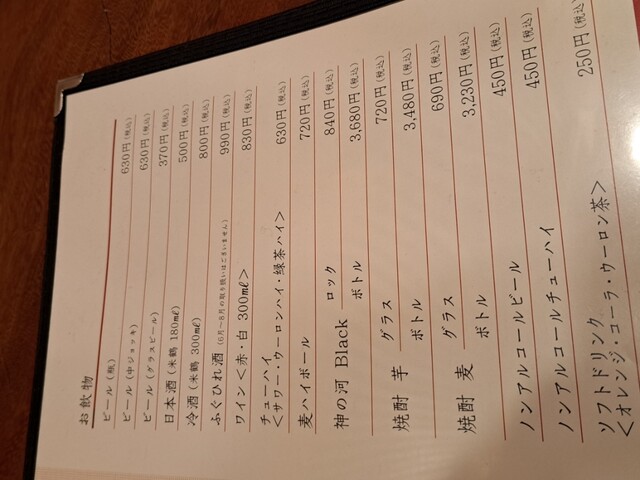 お飲物
ビール(瓶) 630円(税込)
ビール(中ジョッキ) 630円(税込)
ビール(グラスビール) 370円(税込)
日本酒(米鶴 180㎖) 500円(税込)
冷酒(米鶴 300㎖) 800円(税込)
ふぐひれ酒(6月～8月の取り扱いはございません) 990円(税込)
ワイン<赤・白 300㎖> 830円(税込)
チューハイ
<サワー・ウーロンハイ・緑茶ハイ> 630円(税込)
麦ハイボール 720円(税込)
神の河 Black ロック 840円(税込)
ボトル 3,680円(税込)
焼酎 芋 グラス 720円(税込)
ボトル 3,480円(税込)
焼酎 麦 グラス 690円(税込)
ボトル 3,230円(税込)
ノンアルコールビール 450円(税込)
ノンアルコールチューハイ 450円(税込)
ソフトドリンク 250円(税込)
<オレンジ・コーラ・ウーロン茶>